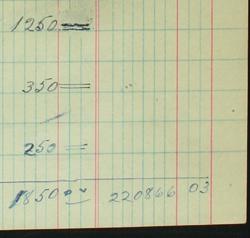 1250 =
350 =
250 =
1850 00 220866 03